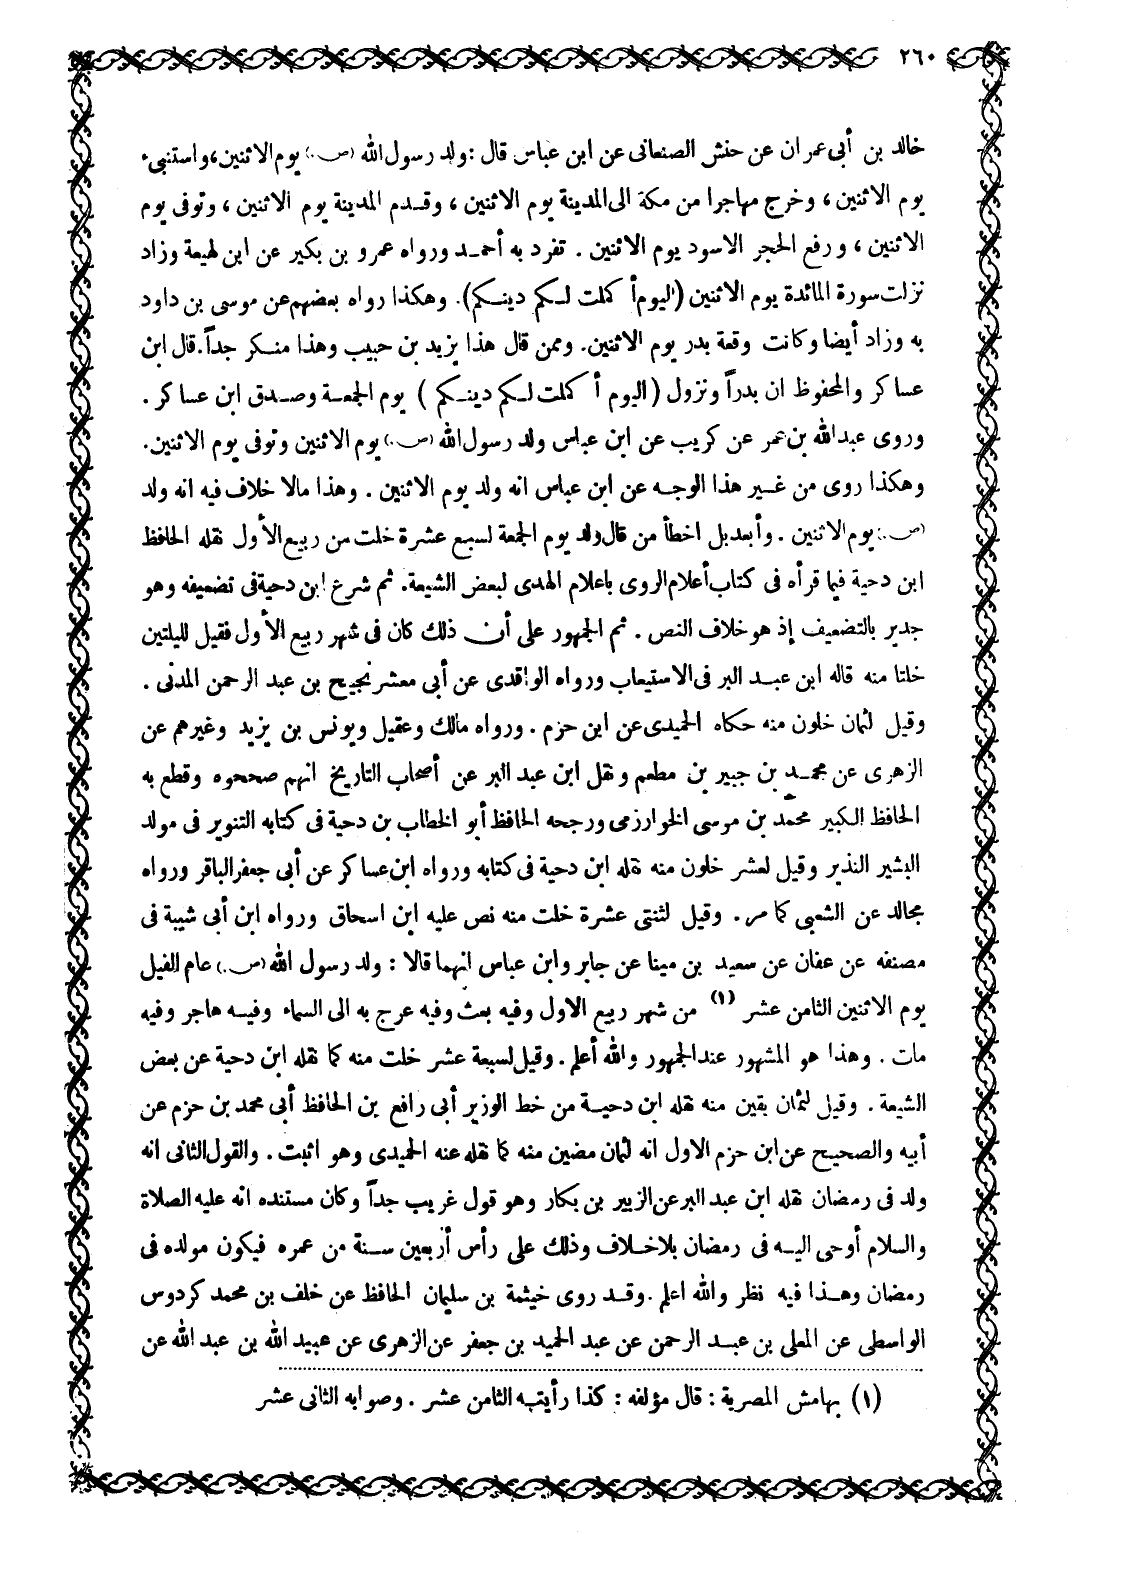 ٢٦٠
خالد بن أبى عمران عن حنش الصنعانى عن ابن عباس قال : ولد رسول الله (ص) يوم الاثنين، واستنبىء
يوم الاثنين ، وخرج مهاجرا من مكة الى المدينة يوم الاثنين ، وقدم المدينة يوم الاثنين ، وتوفى يوم
الاثنين ، ورفع الحجر الاسود يوم الاثنين . تفرد به أحمد ورواه عمرو بن بكير عن ابن لهيعة وزاد
نزلت سورة المائدة يوم الاثنين (اليوم أكملت لكم دينكم). وهكذا رواه بعضهم عن موسى بن داود
به وزاد أيضا وكانت وقعة بدر يوم الاثنين. وممن قال هذا يزيد بن حبيب وهذا منكر جداً. قال ابن
عساكر والمحفوظ ان بدراً ونزول (اليوم أكملت لكم دينكم) يوم الجمعة وصدق ابن عساكر .
وروى عبدالله بن عمر عن كريب عن ابن عباس ولد رسول الله (ص) يوم الاثنين وتوفى يوم الاثنين.
وهكذا روى من غير هذا الوجه عن ابن عباس انه ولد يوم الاثنين . وهذا مالا خلاف فيه انه ولد
(ص) يوم الاثنين . وأبعد بل اخطأ من قال ولد يوم الجمعة لسبع عشرة خلت من ربيع الأول نقله الحافظ
ابن دحية فيما قرأه فى كتاب أعلام الروى باعلام الهدى لبعض الشيعة. ثم شرع ابن دحية فى تضعيفه وهو
جدير بالتضعيف إذ هو خلاف النص . ثم الجمهور على أن ذلك كان فى شهر ربيع الأول فقيل لليلتين
خلتا منه قاله ابن عبد البر فى الاستيعاب ورواه الواقدى عن أبى معشر نجيح بن عبد الرحمن المدنى .
وقيل لثمان خلون منه حكاه الحميدى عن ابن حزم . ورواه مالك وعقيل ويونس بن يزيد وغيرهم عن
الزهرى عن محمد بن جبير بن مطعم ونقل ابن عبد البر عن أصحاب التاريخ انهم صححوه وقطع به
الحافظ الكبير محمد بن موسى الخوارزمى ورجحه الحافظ أبو الخطاب بن دحية فى كتابه التنوير فى مولد
البشير النذير وقيل لعشر خلون منه نقله ابن دحية فى كتابه ورواه ابن عساكر عن أبى جعفر الباقر ورواه
مجالد عن الشعبى كما مر . وقيل لثنتى عشرة خلت منه نص عليه ابن اسحاق ورواه ابن أبى شيبة فى
مصنفه عن عفان عن سعيد بن مينا عن جابر وابن عباس انهما قالا : ولد رسول الله (ص) عام الفيل
يوم الاثنين الثامن عشر (١) من شهر ربيع الاول وفيه بعث وفيه عرج به الى السماء وفيه هاجر وفيه
مات . وهذا هو المشهور عند الجمهور والله أعلم . وقيل لسبعة عشر خلت منه كما نقله ابن دحية عن بعض
الشيعة . وقيل لثمان بقين منه نقله ابن دحية من خط الوزير أبى رافع بن الحافظ أبى محمد بن حزم عن
أبيه والصحيح عن ابن حزم الاول انه لثمان مضين منه كما نقله عنه الحميدى وهو اثبت . والقول الثانى انه
ولد فى رمضان نقله ابن عبد البر عن الزبير بن بكار وهو قول غريب جداً وكان مستنده انه عليه الصلاة
والسلام أوحى اليه فى رمضان بلا خلاف وذلك على رأس أربعين سنة من عمره فيكون مولده فى
رمضان وهذا فيه نظر والله اعلم . وقد روى خيثمة بن سليمان الحافظ عن خلف بن محمد كردوس
الواسطى عن المعلى بن عبد الرحمن عن عبد الحميد بن جعفر عن الزهرى عن عبيد الله بن عبد الله عن
(١) بهامش المصرية : قال مؤلفه : كذا رأيته الثامن عشر . وصوابه الثانى عشر